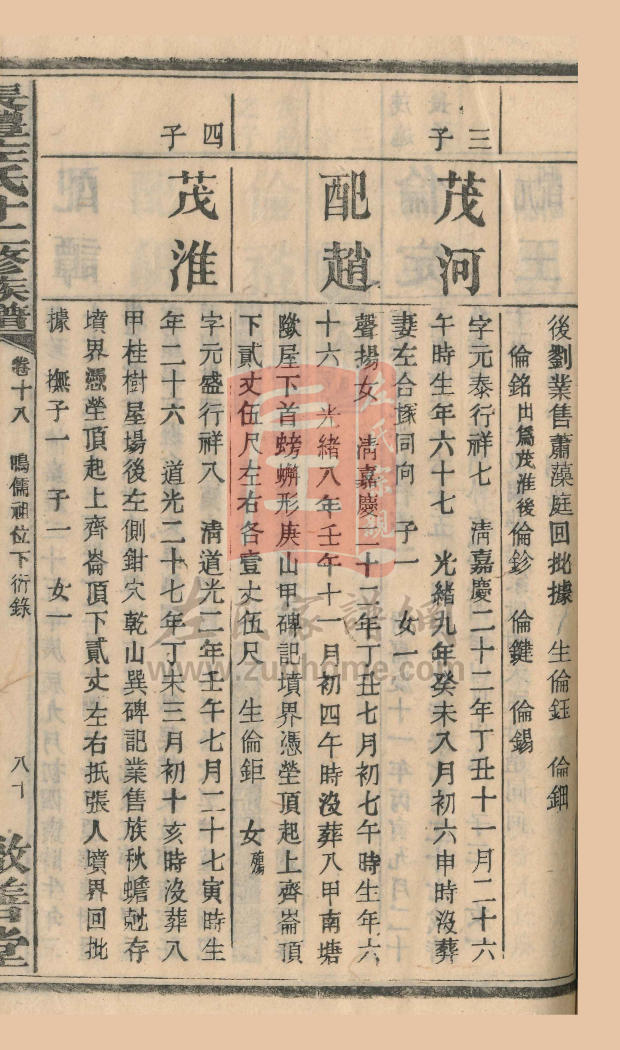 後劉業售蕭藻庭回批據 生倫鈺 倫鋼
倫銘出為茂淮後倫鉁 倫鍵 倫錫
三子
茂河
字元泰行祥七 清嘉慶二十二年丁丑十一月二十六
午時生年六十七 光緒九年癸未八月初六申時沒葬
妻左合塚同向 子二 女一
配趙
聲揚女 清嘉慶二十二年丁丑七月初七午時生年六
十六 光緒八年壬午十一月初四午時沒葬八甲南塘
墈屋下首螃蠏形庚山甲碑記墳界憑塋頂起上齊崙頂
下貳丈伍尺左右各壹丈伍尺 生倫鉅 女殤
四子
茂淮
字元盛行祥八 清道光二年壬午七月二十七寅時生
年二十六 道光二十七年丁未三月初十亥時沒葬八
甲桂樹屋場後左側鉗穴乾山巽碑記業售族秋蟾尅存
墳界憑塋頂起上齊崙頂下貳丈左右抵張人墳界回批
據 撫子一 子一 女一
長豐左氏十二修族譜
卷十八 鳴儒祖位下衍錄
八十
敦善堂
左氏宗親
左氏家譜網
www.zuohome.com